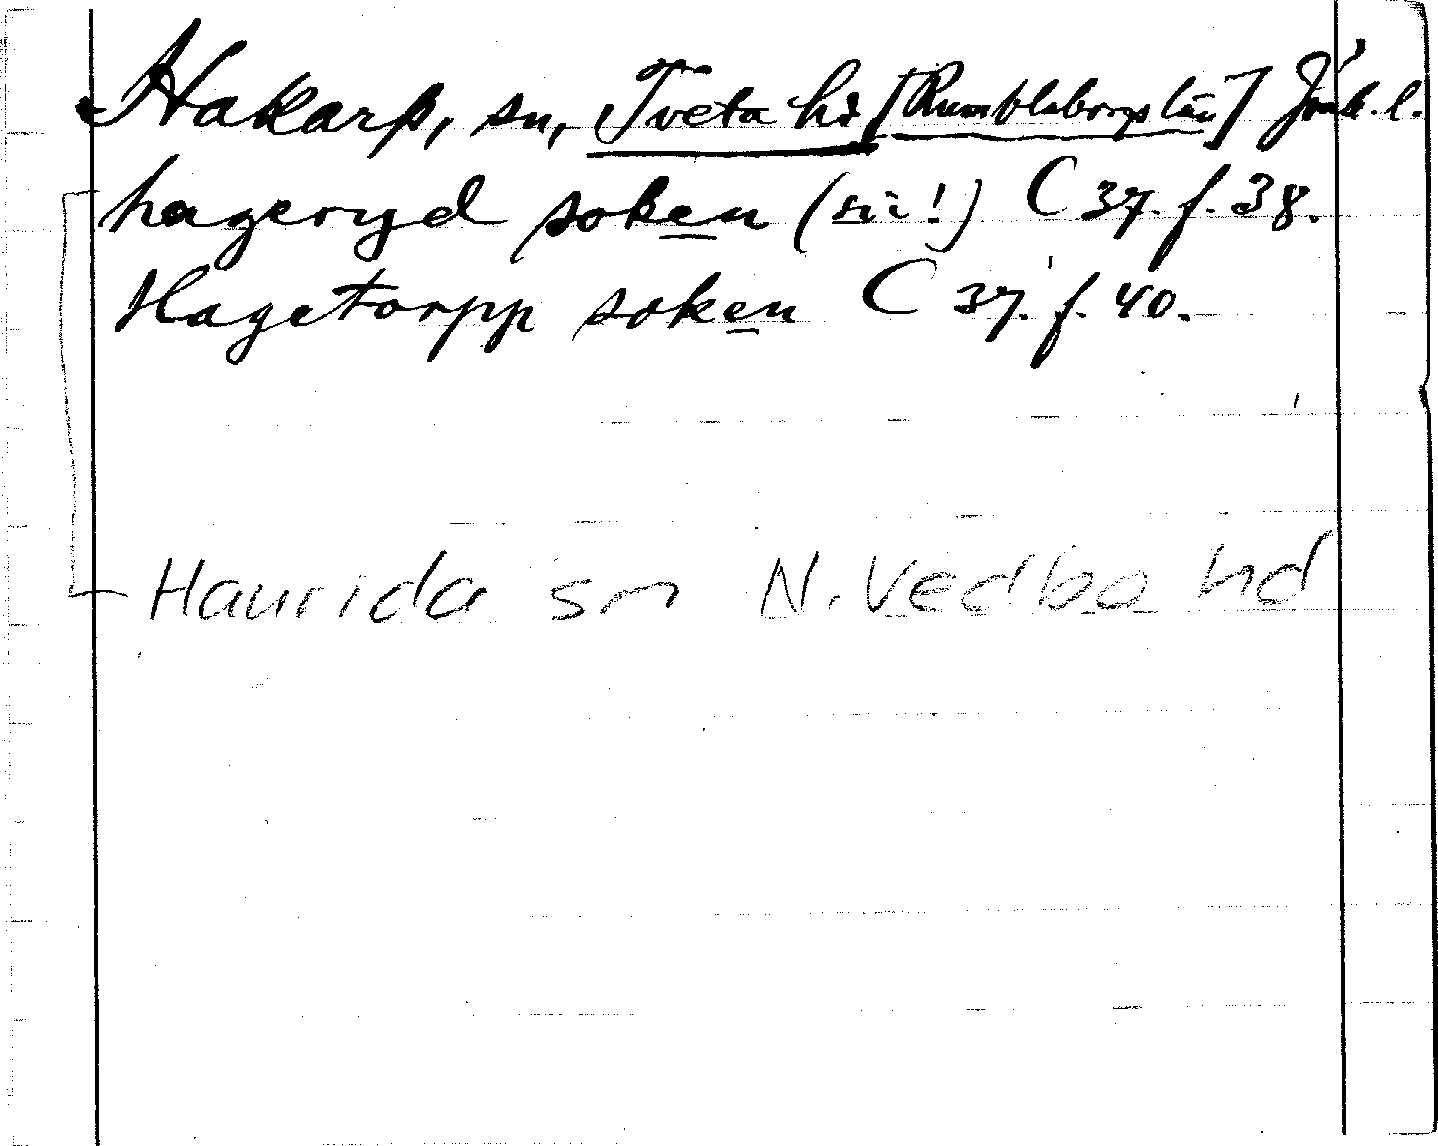 Hakarp, sn, Tveta hd [Rumblaborgs län] Jönk. l.
hageryd soken (sic!) C 37. f. 38.
Hagetorpp soken C 37. f. 40.
Haurida sn N. Vedbo hd